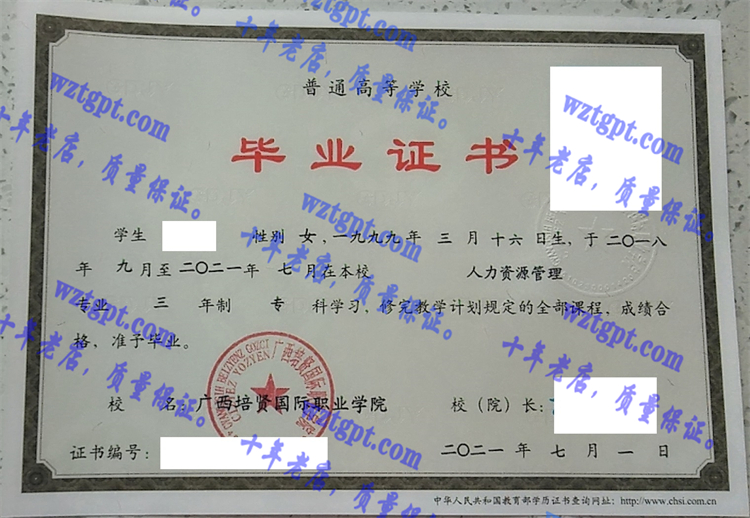 普通高等学校
毕业证书
学生 性别 女，一九九九年 三 月 十六 日生，于 二〇一八
年 九 月至 二〇二一 年 七 月在本校 人力资源管理
专业 三 年制 专 科学习，修完教学计划规定的全部课程，成绩合
格，准予毕业。
校 名：广西培贤国际职业学院 校（院）长：
证书编号： 二〇二一 年 七 月 一 日
中华人民共和国教育部学历证书查询网址：http://www.chsi.com.cn
wztgpt.com
十年老店，质量保证。
wztgpt.com
十年老店，质量保证。
wztgpt.com
十年老店，质量保证。
wztgpt.com
十年老店，质量保证。
wztgpt.com
十年老店，质量保证。
wztgpt.com
十年老店，质量保证。
wztgpt.com
十年老店，质量保证。
wztgpt.com
十年老店，质量保证。